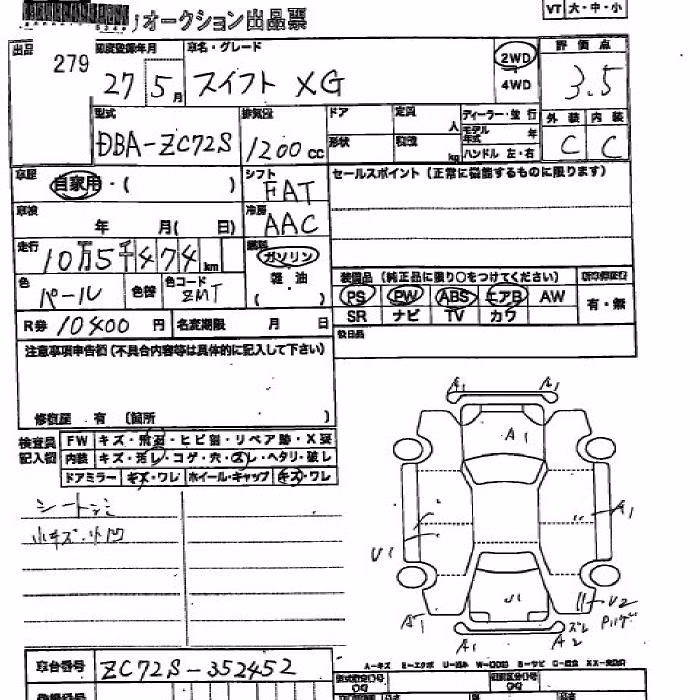 オークション出品票
VT 大・中・小
279
初度登録年月 車名・グレード 評価点
27 5月 スイフト XG 2WD 4WD 3.5
型式 排気量 ドア 定員 人 ディーラー・並行 外装 内装
DBA-ZC72S 1200cc 形状 積載 kg モデル年式 年 ハンドル 左・右 C C
車歴 自家用・( ) シフト FAT セールスポイント(正常に機能するものに限ります)
車検 年 月( 日) 冷房 AAC
走行 10万5千474km 燃料 ガソリン 軽油 ( )
色 パール 色替 色コード ZMT
装備品(純正品に限り○をつけてください)
PS PW ABS エアB AW 有・無
SR ナビ TV カワ
R券 10400円 名変期限 月 日
後日品
注意事項申告欄(不具合内容等は具体的に記入して下さい)
修復歴 有 (箇所 )
検査員記入欄 FW キズ・飛石・ヒビ割・リペア跡・X要
内装 キズ・汚レ・コゲ・穴・スレ・ヘタリ・破レ
ドアミラー キズ・ワレ ホイール・キャップ キズ・ワレ
シート
小キズ・小凹
A1 A1
A1
A1
U1
U1
U2
A1
A1 A2
車台番号 ZC72S-352452
A-キズ E-エクボ